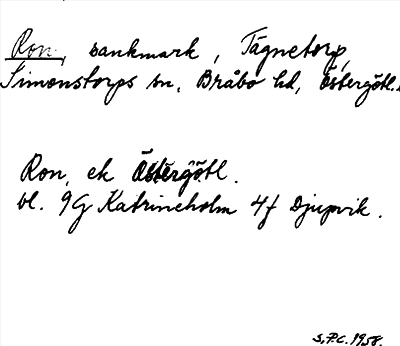 Ron, sankmark, Tägnetorp,
Simonstorps sn, Bråbo hd, Östergötl.
Ron, ek Östergötl.
bl. 9G Katrineholm 4f Djupvik.
S.P.C. 1958.